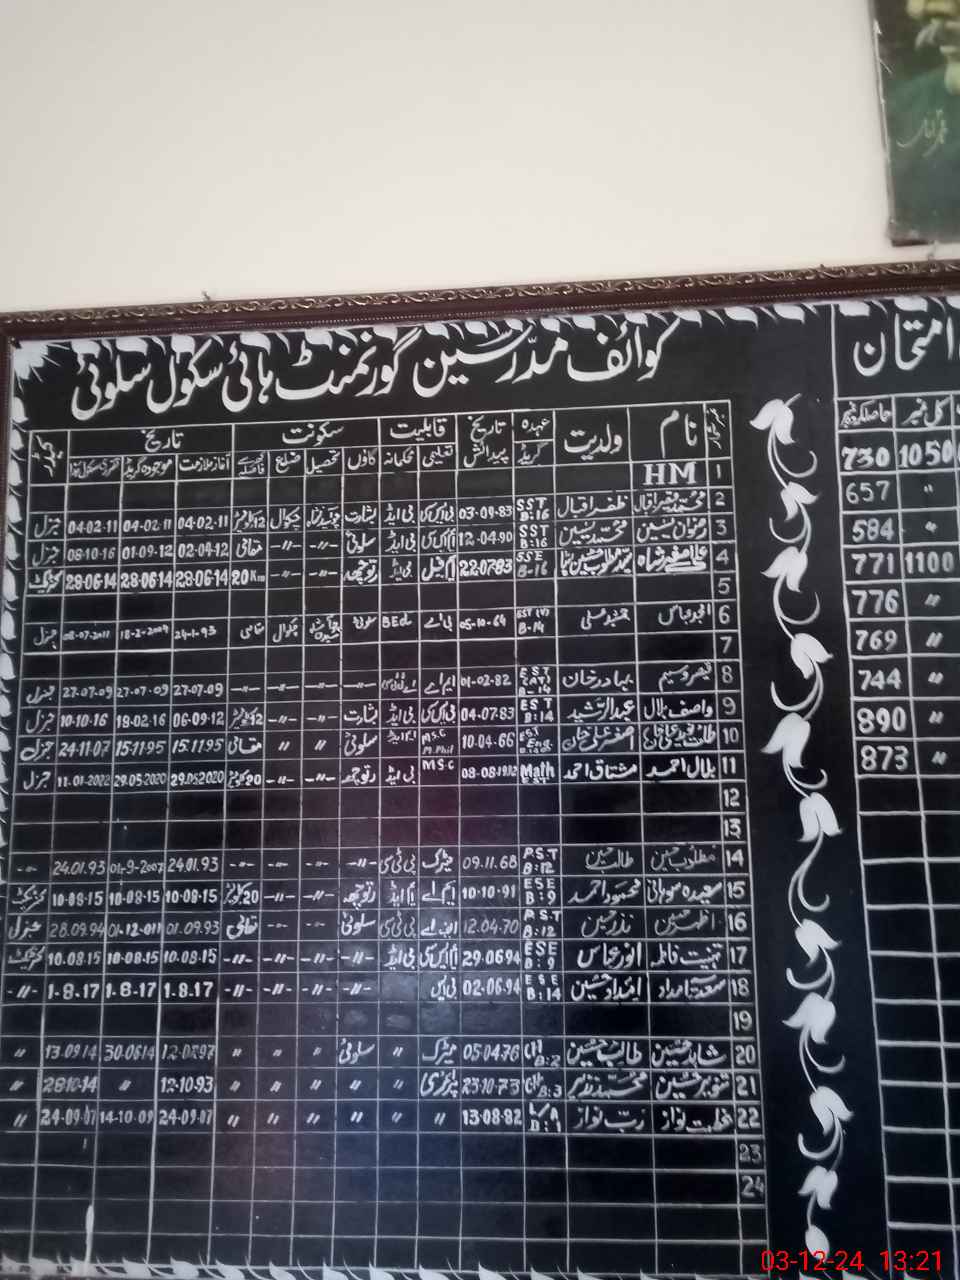 کوائف مدرسین گورنمنٹ ہائی سکول سلوئی
نمبر شمار نام ولدیت عہدہ گریڈ تاریخ پیدائش قابلیت تعلیمی محکمانہ سکونت گاؤں تحصیل ضلع تاریخ آغاز ملازمت موجودہ گریڈ
1 HM
2 ظفر اقبال SST B:16 03-09-83 بی ایڈ بشارت چکوال 04-02-11 04-02-11 04-02-11 جنرل
3 رضوان یٰسین محمد یٰسین SST B:16 12-04-90 بی ایڈ سلوئی -//- -//- مقامی 02-04-12 01-09-12 08-10-16 جنرل
4 SSE B-16 22-07-83 ایم فل بی ایڈ رتوچھہ -//- -//- 20 Km 28-06-14 28-06-14 28-06-14 کنٹریکٹ
5
6 EST (V) B-14 05-10-64 بی اے BEd سلوئی چکوال مقامی 24-1-93 18-2-2009 جنرل
7
8 قیصر وسیم بہادر خان EST (AT) B-14 01-02-82 ایم اے -//- -//- -//- -//- 27-07-09 27-07-09 27-07-09 جنرل
9 واصف بلال عبدالرشید EST B:14 04-07-83 بی ایڈ بشارت -//- -//- 06-09-12 18-02-16 10-10-16 جنرل
10 اصغر علی خان EST Eng. 10-04-66 M.S.C M.Phil سلوئی // // مقامی 15.11.95 15.11.95 24-11-07 جنرل
11 بلال احمد مشتاق احمد Math EST 08-08-1992 M.S.C بی ایڈ رتوچھہ -//- -//- 20 کلومیٹر 29.05.2020 29.05.2020 11-01-2022 جنرل
12
13
14 مطلوب حسین طالب حسین P.S.T B:12 09.11.68 میٹرک پی ٹی سی -//- 24.01.93 01-9-2007 24.01.93
15 محمود احمد ESE B:9 10-10-91 ایم اے ایم ایڈ رتوچھہ -//- -//- 20 کلومیٹر 10-08-15 10-08-15 10-08-15 کنٹریکٹ
16 اظہر حسین نذر حسین P.S.T B:12 12.04.70 ایف اے پی ٹی سی سلوئی مقامی 01.09.93 01-12-011 28.09.94 جنرل
17 تہنیت فاطمہ انور عباس ESE B:9 29.06.94 بی ایڈ -//- -//- -//- -//- 10.08.15 10.08.15 10.08.15 کنٹریکٹ
18 سعدیہ امداد امداد حسین ESE B:14 02-06-94 بی ایس -//- -//- -//- -//- 1-8-17 1-8-17 1-8-17 -//-
19
20 شاہد حسین طالب حسین B:2 05-04-76 میٹرک // سلوئی // // // 30-06-14 13-09-14 //
21 تنویر حسین B:3 23-10-73 پرائمری // // // // // 12-10-93 // 28-10-14 //
22 رب نواز L/A B:1 13-08-82 // // // // // // 24-09-07 14-10-09 24-09-07 //
23
24
امتحان
کل نمبر حاصلکردہ نمبر
1050 730
// 657
// 584
1100 771
// 776
// 769
// 744
// 890
// 873
03-12-24 13:21